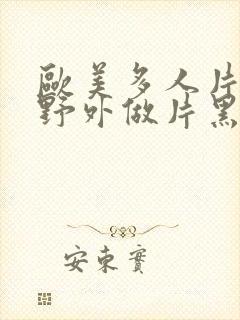 歐美多人片
野外做片黑
安東實